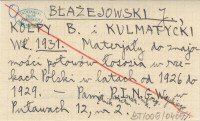 BŁAŻEJOWSKI Je.,
KOŁPY B. i KULMATYCKI
Wł. 1931. Materjały do znajo-
mości połowów łososia w rze-
kach Polski w latach od 1926 do
1929. Pamię. P.I.N.G.W. w
Puławach 12, nr 2.